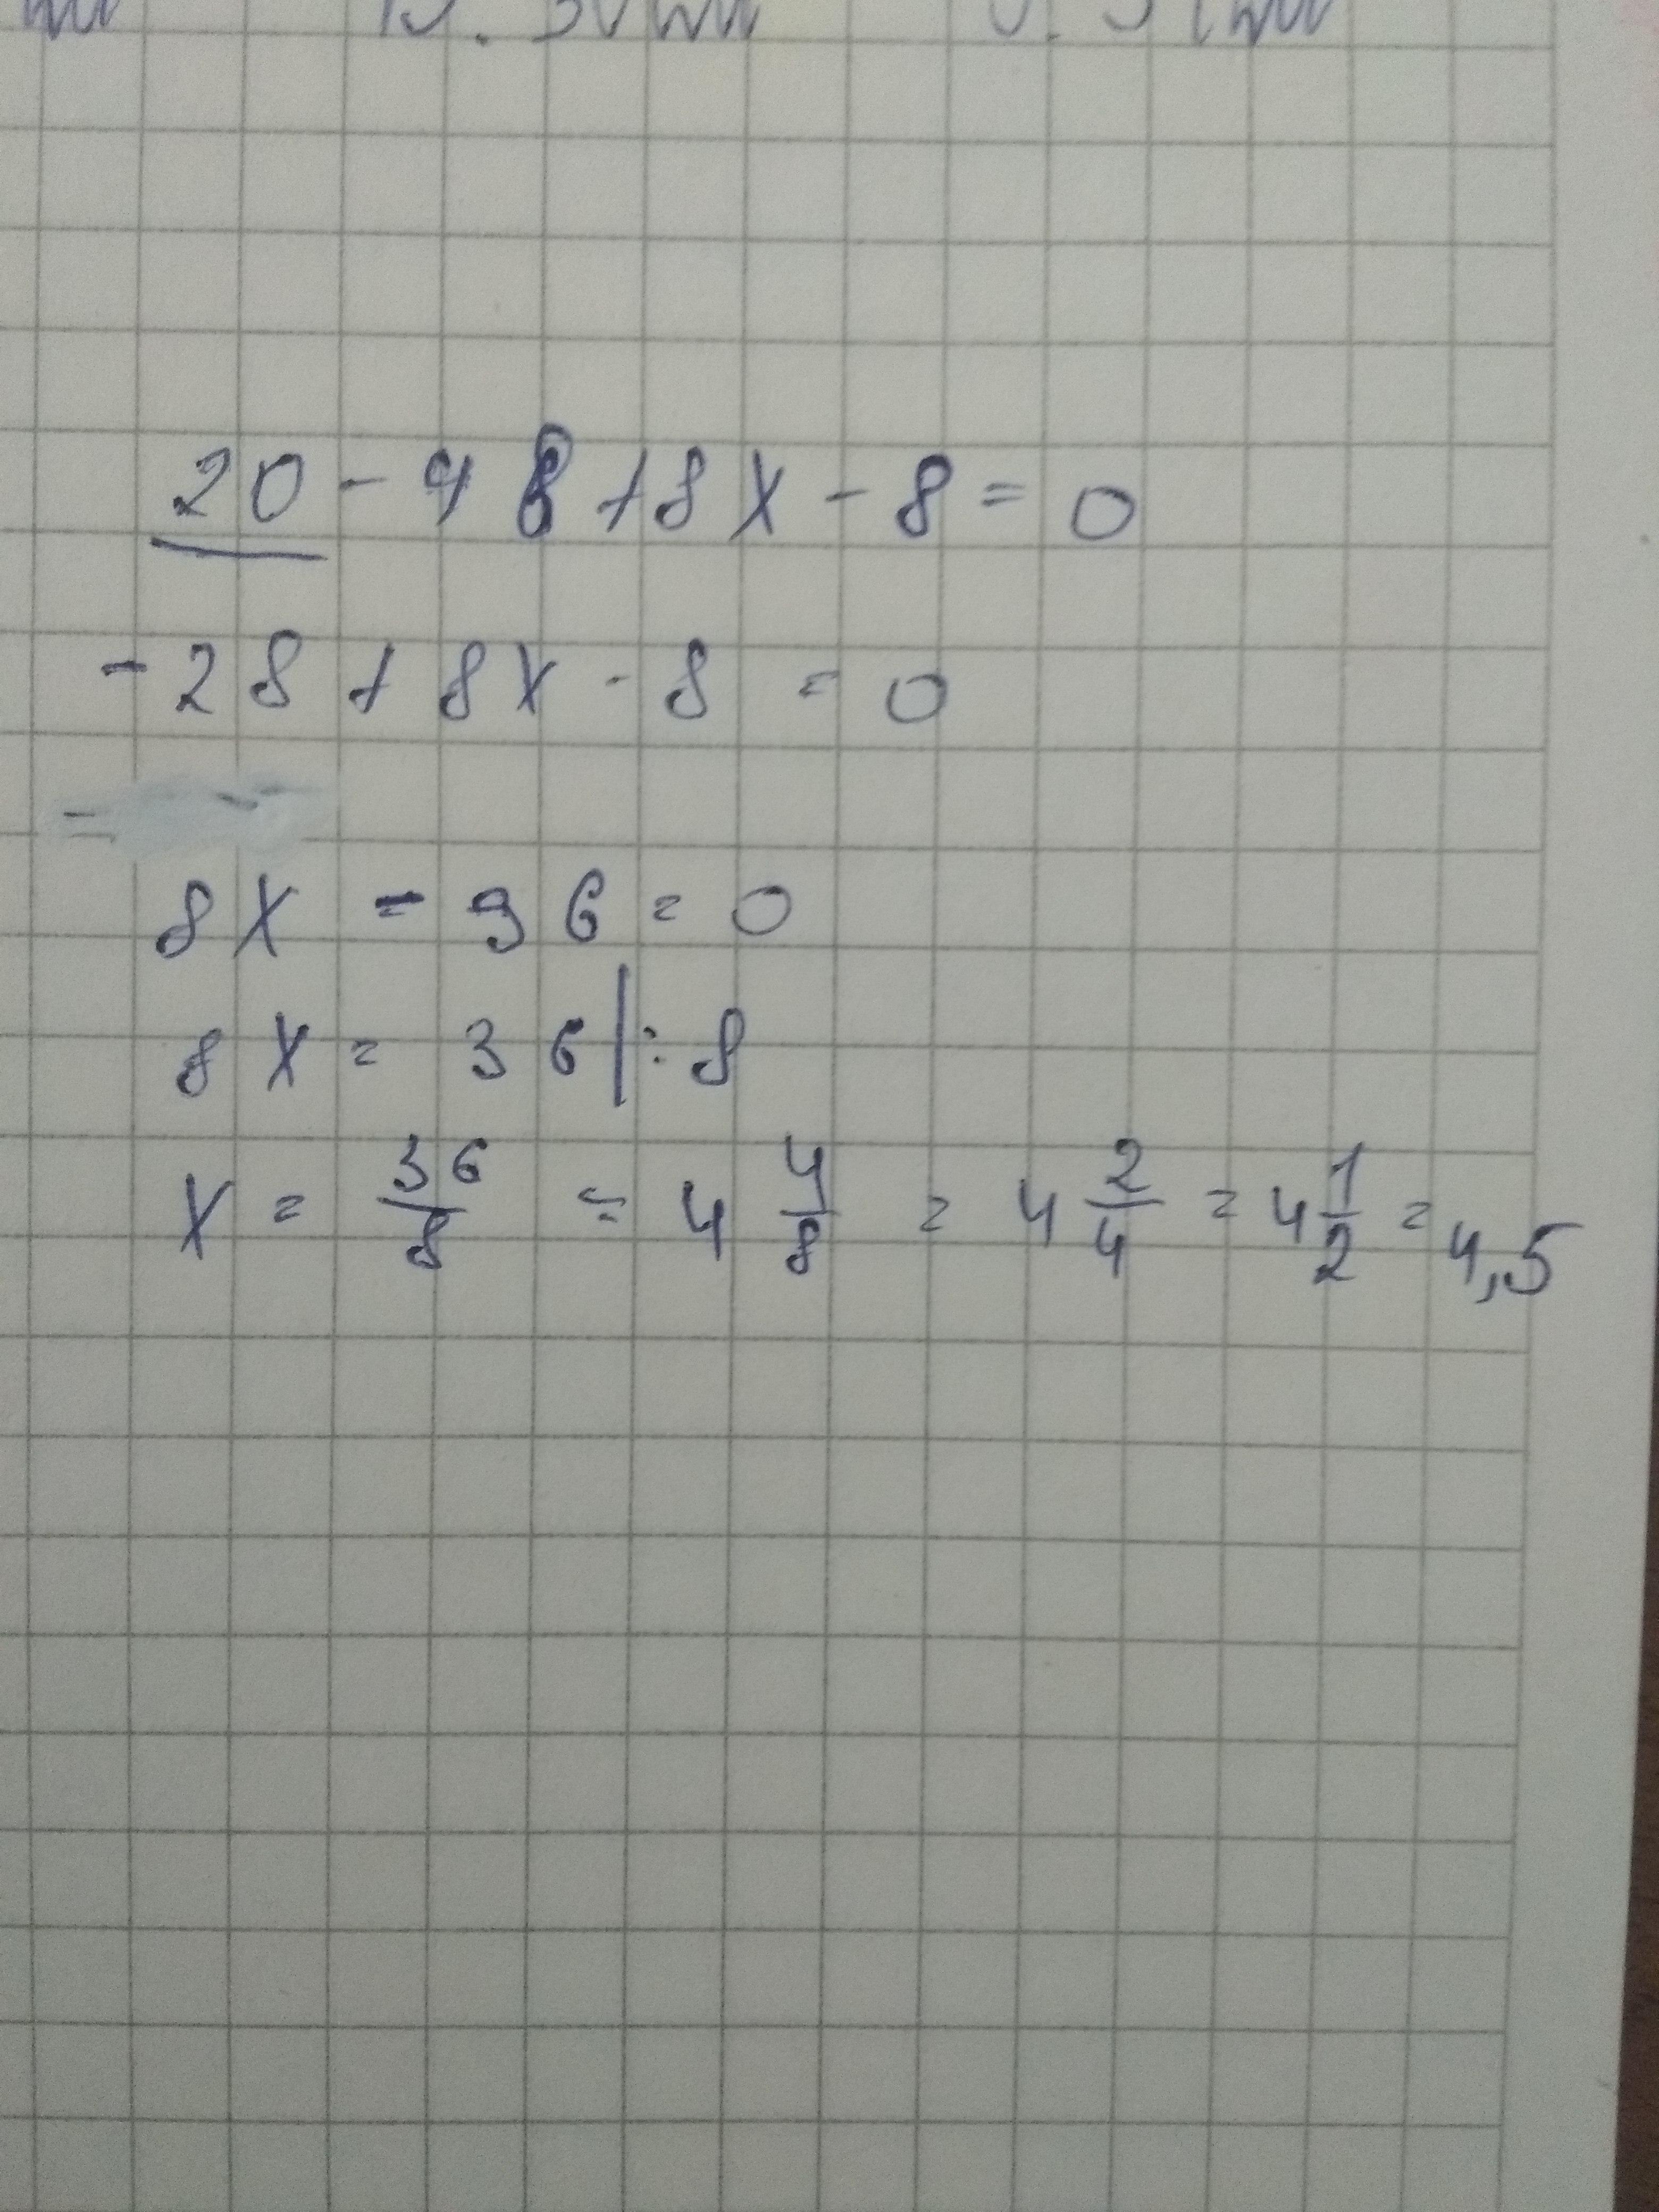 20 - 48 + 8x - 8 = 0
- 28 + 8x - 8 = 0
=
8x - 36 = 0
8x = 36 | : 8
x = 36/8 = 4 4/8 = 4 2/4 = 4 1/2 = 4,5